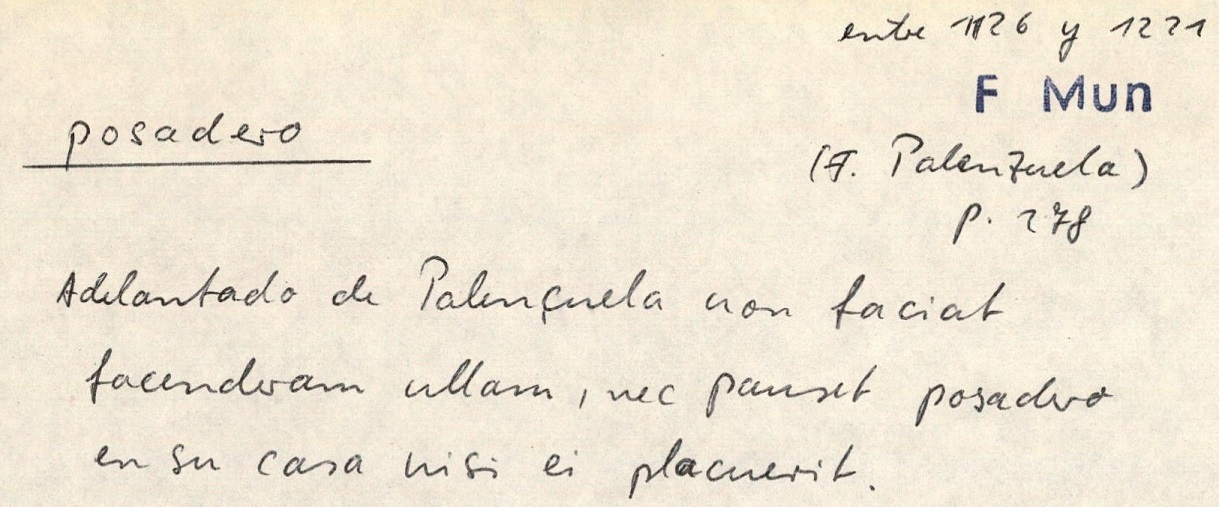 entre 1126 y 1221
F Mun
posadero
(F. Palenzuela)
p. 278
Adelantado de Palençuela non faciat
facenderam ullam, nec pauset posadero
en su casa nisi ei placuerit.